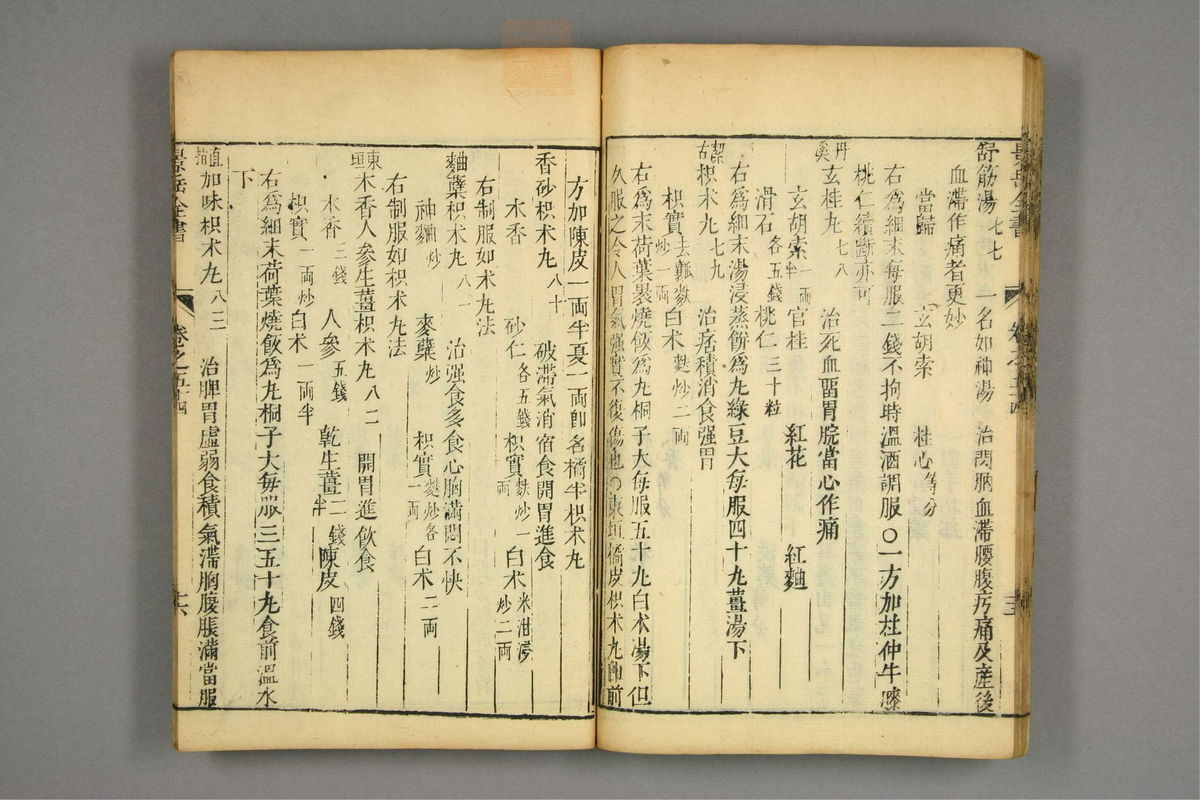 舒筋湯七七　一名如神湯　治閃䐃血滯腰腹疼痛及產後
血滯作痛者更妙
當歸　玄胡索　桂心等分
右爲細末每服二錢不拘時溫酒調服〇一方加杜仲牛膝
桃仁續斷亦可
丹溪玄桂丸七八　治死血畱胃脘當心作痛
玄胡索一両半　官桂　紅花　紅麯
滑石各五錢　桃仁三十粒
右爲細末湯浸蒸餅爲丸綠豆大每服四十九薑湯下
潔古枳术丸七九　治痞積消食强胃
枳實去瓤麩炒一両　白术麩炒二両
右爲末荷葉裹燒飯爲丸桐子大每服五十丸白术湯下但
久服之令人胃氣强實不復傷也〇東垣橘皮枳术丸卽前
方加陳皮一両半夏一両卽名橘半枳术丸
香砂枳术丸八十　破滯氣消宿食開胃進食
木香　砂仁各五錢　枳實麩炒一両　白术米泔浸炒二両
右制服如术丸法
麯蘗枳术丸八一　治强食多食心胸滿悶不快
神麯炒　麥蘗炒　枳實麩炒各一両　白术二両
右制服如枳术丸法
東垣木香人參生薑枳术丸八二　開胃進飲食
木香三錢　人參五錢　乾生薑二錢半　陳皮四錢
枳實一両炒　白术一両半
右爲細末荷葉燒飯爲丸桐子大每服三五十丸食前溫水
下
直指加味枳术丸八三　治脾胃虛弱食積氣滯胸腹脹滿當服
景岳全書
卷之五十四
景岳全書
卷之五十四
十六